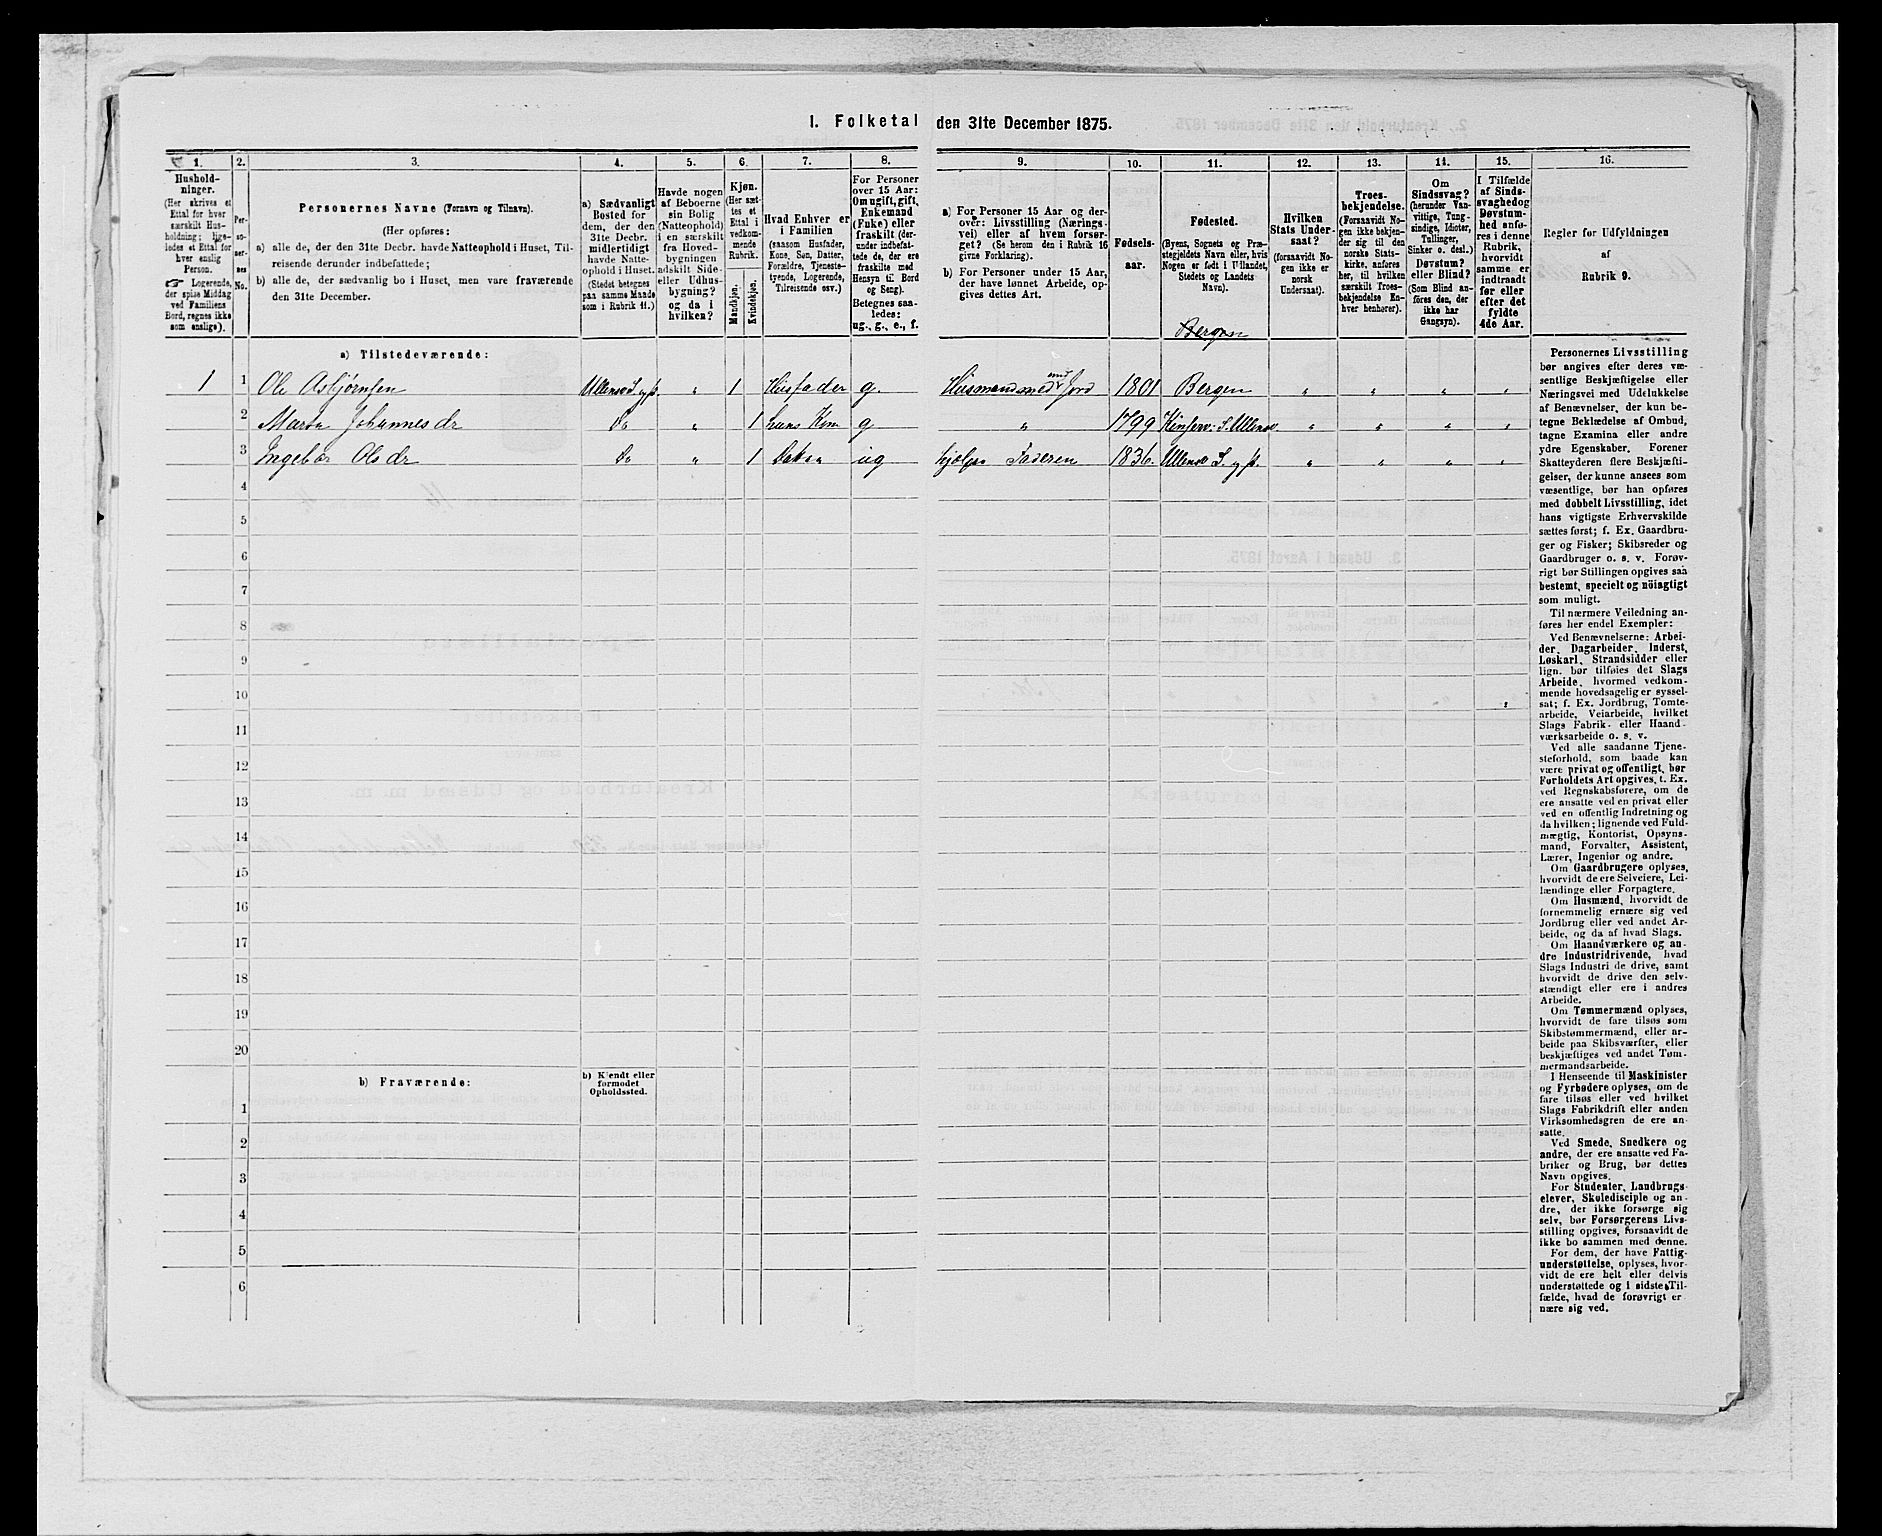 1. Folketal den 31te December 1875.
1.
Hushold-
ninger.
(Her skrives et
Ettal for hver
særskilt Hus-
holdning; lige-
ledes et Ettal for
hver enslig
Person.
☛ Logerende,
der spise Middag
ved Familiens
Bord, regnes ikke
som enslige).
2.
Per-
so-
ner-
nes
No.
3.
Personernes Navne (Fornavn og Tilnavn).
(Her opføres:
a) alle de, der den 31te Decbr. havde Natteophold i Huset, Til-
reisende derunder indbefattede;
b) alle de, der sædvanlig bo i Huset, men vare fraværende
den 31te December.
4.
a) Sædvanligt
Bosted for
dem, der den
31te Decbr.
midlertidigt
havde Natte-
ophold i Huset.
(Stedet betegnes
paa samme Maade
som i Rubrik 11.)
5.
Havde nogen
af Beboerne
sin Bolig
(Natteophold)
i en særskilt
fra Hoved-
bygningen
adskilt Side-
eller Udhus-
bygning?
og da i
hvilken?
6.
Kjøn.
(Her sæt-
tes et
Ettal i
vedkom-
mende
Rubrik.
Mandkjøn.
Kvindekjøn.
7.
Hvad Enhver er
i Familien
(saasom Husfader,
Kone, Søn, Datter,
Forældre, Tjeneste-
tyende, Logerende,
Tilreisende osv.)
8.
For Personer
over 15 Aar:
Om ugift, gift,
Enkemand
(Enke) eller
fraskilt (der-
under indbefat-
tede de, der ere
fraskilte med
Hensyn til Bord
og Seng).
Betegnes saa-
ledes:
ug., g., e., f.
9.
a) For Personer 15 Aar og der-
over: Livsstilling (Nærings-
vei) eller af hvem forsør-
get? (Se herom den i Rubrik 16
givne Forklaring).
b) For Personer under 15 Aar,
der have lønnet Arbeide, op-
gives dettes Art.
10.
Fødsels-
aar.
11.
Fødested.
(Byens, Sognets og Præ-
stegjeldets Navn eller, hvis
Nogen er født i Udlandet,
Stedets og Landets
Navn).
Bergen
12.
Hvilken
Stats Under-
saat?
(forsaavidt No-
gen ikke er
norsk
Undersaat).
13.
Troes-
bekjendelse.
(Forsaavidt No-
gen ikke bekjen-
der sig til den
norske Stats-
kirke, anføres
her, til hvilken
særskilt Troes-
bekjendelse En-
hver henhører).
14.
Om
Sindssvag?
(herunder Van-
vittige, Tung-
sindige, Idioter,
Tullinger,
Sinker o. desl.)
Døvstum?
eller Blind?
(Som Blind an-
føres den, der
ikke har
Gangsyn).
15.
I Tilfælde
af Sinds-
svaghed og
Døvstum-
hed anfø-
res i denne
Rubrik,
hvorvidt
samme er
indtraadt
før eller
efter det
fyldte
4de Aar.
16.
Regler for Udfyldningen
af
Rubrik 9.
a) Tilstedeværende:
1 1 Ole Asbjørnsen Ullensv. S. og P. „ 1 Husfader g. Husmand med Jord 1801 Bergen „ „ „ „
2 Marta Johannesdr Do „ 1 hans Kone g „ 1799 Kinserv: S. Ullensv. „ „ „ „
3 Ingebor Olsdr Do „ 1 Datter ug hjælper Faderen 1836. Ullensv S. og P. „ „ „ „
4
5
6
7
8
9
10
11
12
13
14
15
16
17
18
19
20
b) Fraværende:
b) Kjendt eller
formodet
Opholdssted.
1
2
3
4
5
6
Personernes Livsstilling
bør angives efter deres væ-
sentlige Beskjæftigelse eller
Næringsvei med Udelukkelse
af Benævnelser, der kun be-
tegne Beklædelse af Ombud,
tagne Examina eller andre
ydre Egenskaber. Forener
Skatteyderen flere Beskjæfti-
gelser, der kunne ansees som
væsentlige, bør han opføres
med dobbelt Livsstilling, idet
hans vigtigste Erhvervskilde
sættes først; f. Ex. Gaardbru-
ger og Fisker; Skibsreder og
Gaardbruger o. s. v. Forøv-
rigt bør Stillingen opgives saa
bestemt, specielt og nöiagtigt
som muligt.
Til nærmere Veiledning an-
føres her endel Exempler:
Ved Benævnelserne: Arbei-
der, Dagarbeider, Inderst,
Løskarl, Strandsidder eller
lign. bør tilføies det Slags
Arbeide, hvormed vedkom-
mende hovedsagelig er syssel-
sat; f. Ex. Jordbrug, Tomte-
arbeide, Veiarbeide, hvilket
Slags Fabrik- eller Haand-
værksarbeide o. s. v.
Ved alle saadanne Tjene-
steforhold, som baade kan
være privat og offentligt, bør
Forholdets Art opgives, t. Ex.
ved Regnskabsførere, om de
ere ansatte ved en privat eller
ved en offentlig Indretning og
da hvilken; lignende ved Fuld-
mægtig, Kontorist, Opsyns-
mand, Forvalter, Assistent,
Lærer, Ingeniør og andre.
Om Gaardbrugere oplyses,
hvorvidt de ere Selveiere, Lei-
lændinge eller Forpagtere.
Om Husmænd, hvorvidt de
fornemmelig ernære sig ved
Jordbrug eller ved andet Ar-
beide, og da af hvad Slags.
Om Haandværkere og an-
dre Industridrivende, hvad
Slags Industri de drive, samt
hvorvidt de drive den selv-
stændigt eller ere i andres
Arbeide.
Om Tømmermænd oplyses,
hvorvidt de fare tilsøs som
Skibstømmermænd, eller ar-
beide paa Skibsværfter, eller
beskjæftiges ved andet Tøm-
mermandsarbeide.
I Henseende til Maskinister
og Fyrbødere oplyses, om de
fare tilsøs eller ved hvilket
Slags Fabrikdrift eller anden
Virksomhedsgren de ere an-
satte.
Ved Smede, Snedkere og
andre, der ere ansatte ved Fa-
briker og Brug, bør dettes
Navn opgives.
For Studenter, Landbrugs-
elever, Skoledisciple og an-
dre, der ikke forsørge sig
selv, bør Forsørgerens Livs-
stilling opgives, forsaavidt de
ikke bo sammen med denne.
For dem, der have Fattig-
understøttelse, oplyses, hvor-
vidt de ere helt eller delvis
understøttede og i sidste Til-
fælde, hvad de forøvrigt er-
nære sig ved.